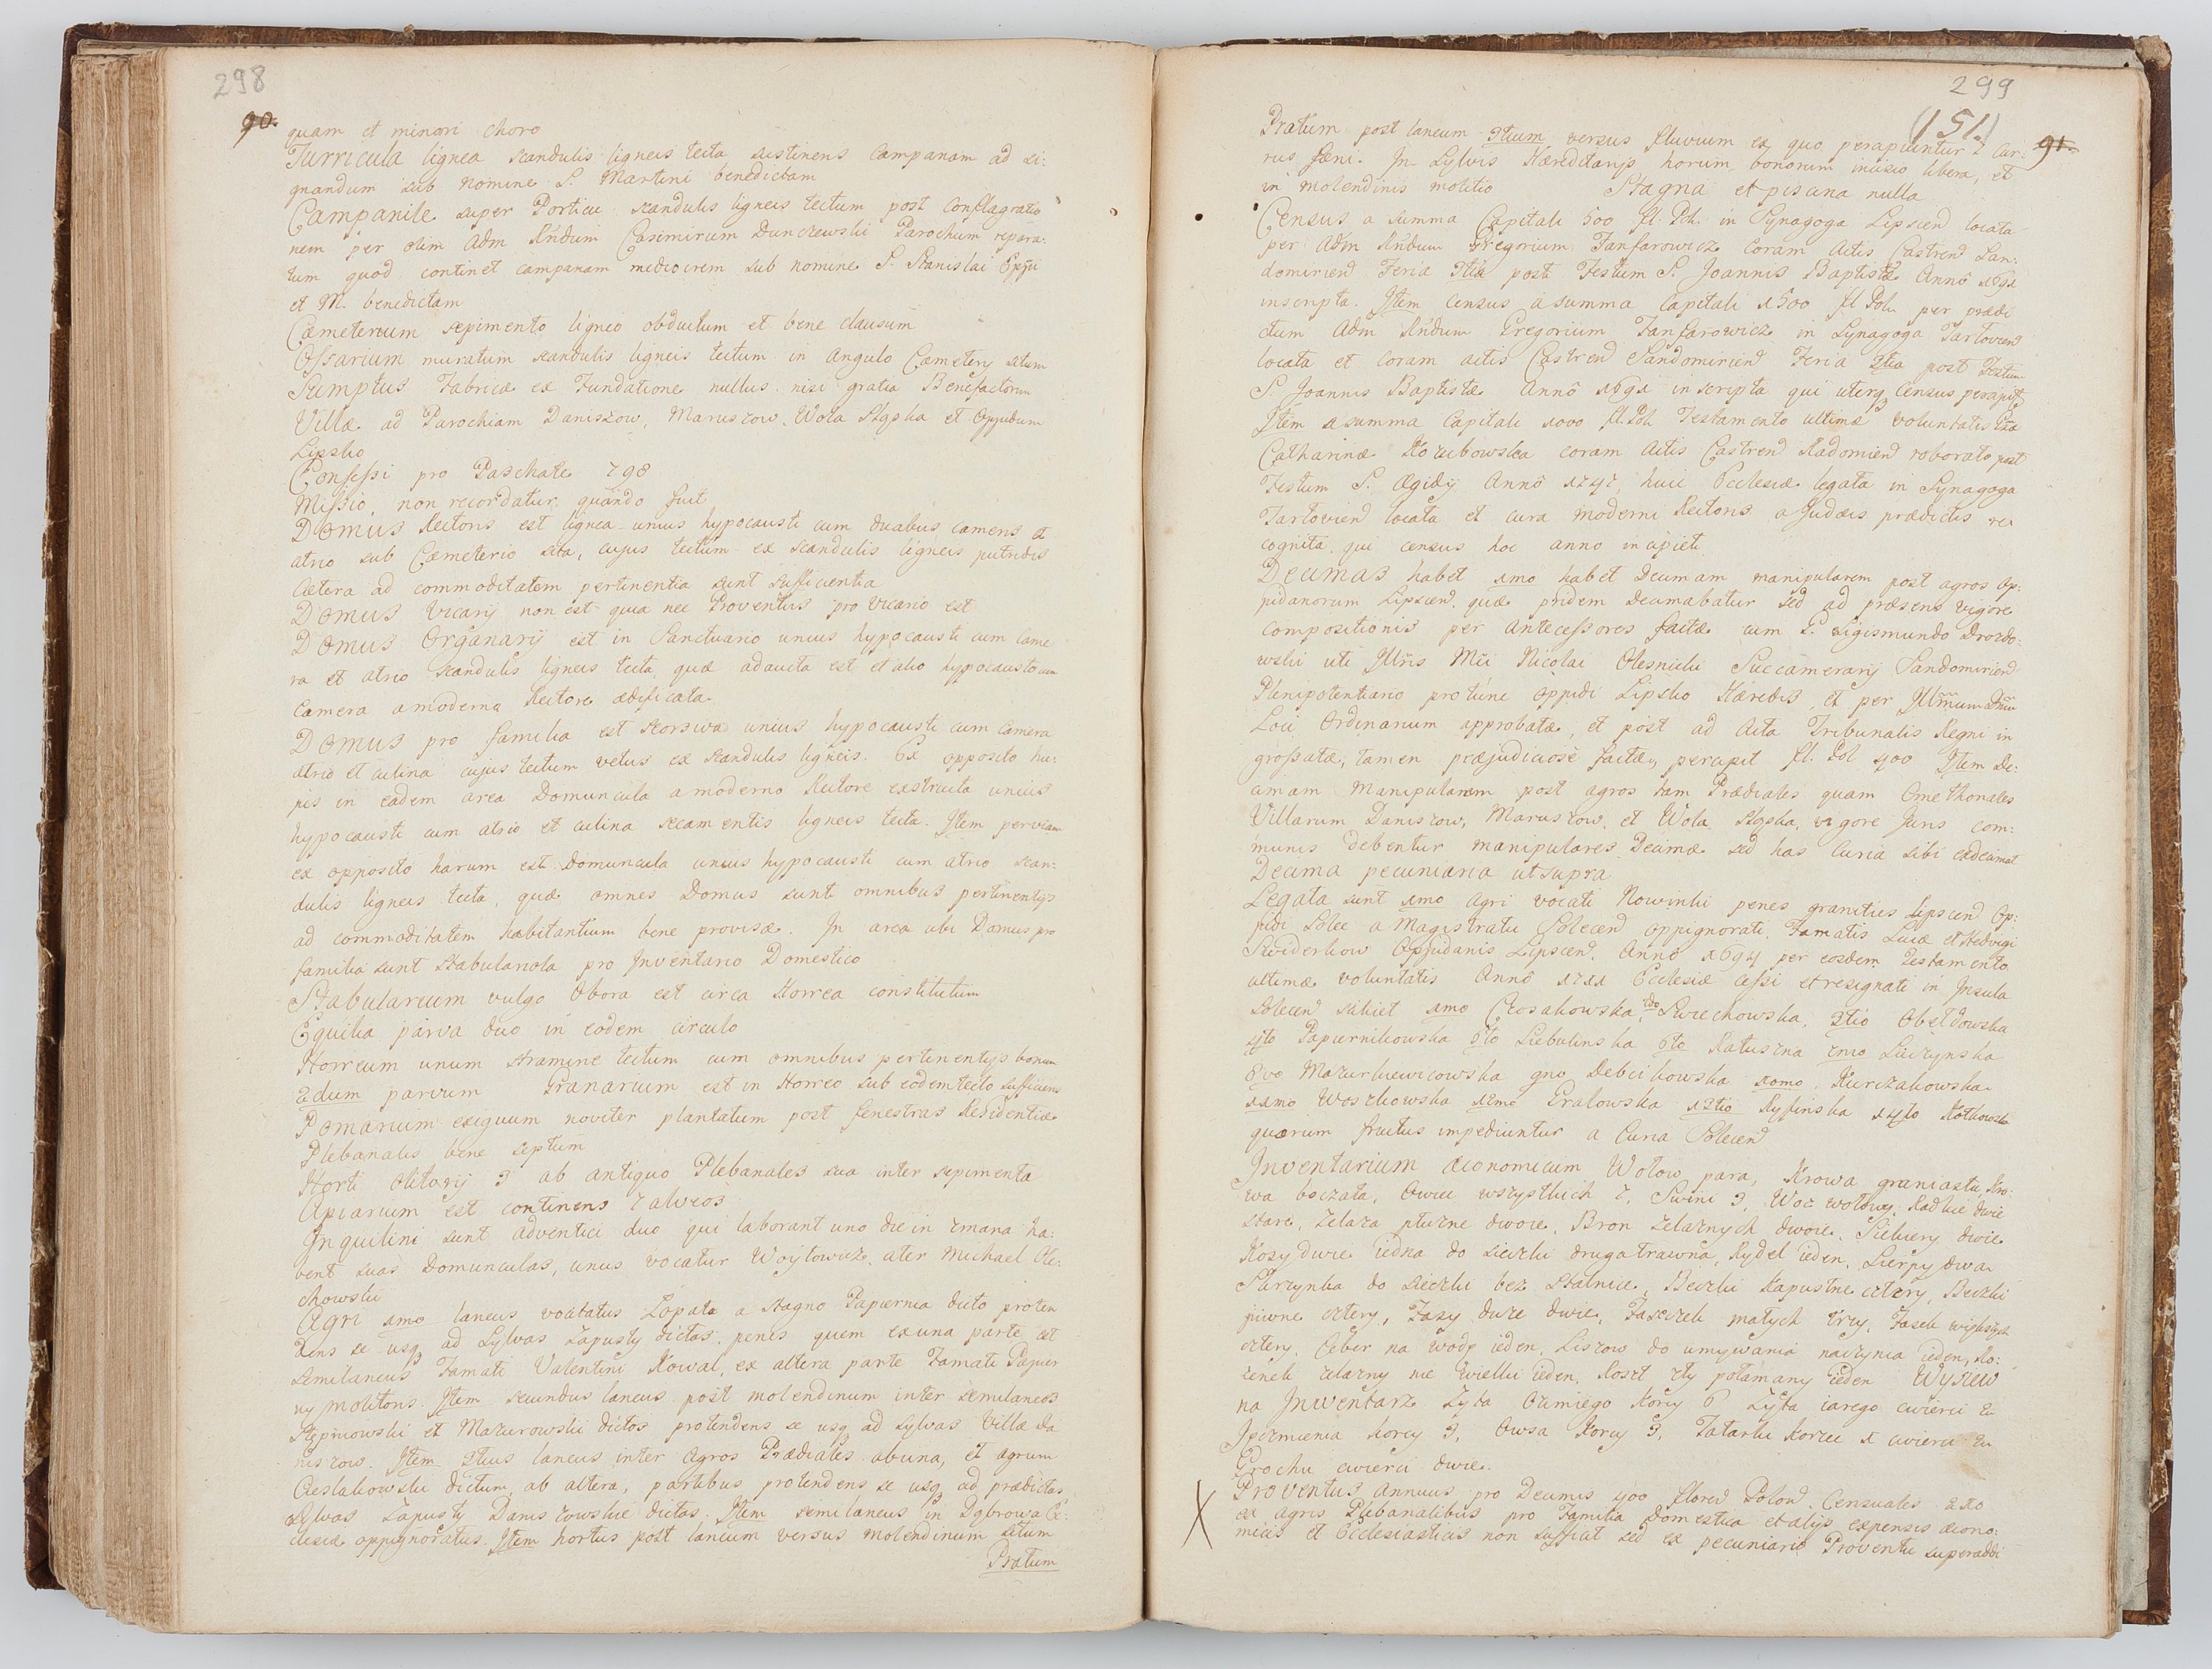 298
90.
quam et minori choro
Turricula lignea scandulis ligneis tecta sustinens Campanam ad si:
gnandum sub nomine S. Martini benedictam
Campanile super Porticu scandulis ligneis tectum post Conflagratio
nem per olim Adm Rńdum Casimirum Dunczewski Parochum repara:
tum quod continet campanam mediocrem sub nomine S. Stanislai Eppi
et M. benedictam
Cæmeterium sepimento ligneo obductum et bene clausum
Ossarium muratum scandulis ligneis tectum in angulo Cæmetery situm
Sumptus Fabricæ ex Fundatione nullus nisi gratia Benefactorum
Villæ ad Parochiam Daniszow, Maruszow, Wola Sląska et Oppidum
Lipsko
Confessi pro Paschate 798
Missio, non recordatur quando fuit
Domus Rectoris est lignea unius hypocausti cum duabus cameris et
atrio sub Cæmeterio sita, cujus tectum ex scandulis ligneis putridis
Cætera ad commoditatem pertinentia sunt sufficientia
Domus Vicarij non est quia nec Proventus pro Vicario est
Domus Organarij est in Sanctuario unius hypocausti cum Came
ra et atrio scandulis ligneis tecta, quæ adaucta est et alio hypocausto cum
Camera a moderno Rectore ædificata
Domus pro familia est seorsiva unius hypocausti cum Camera
atrio et culina cujus tectum vetus ex scandulis ligneis. Ex opposito hu:
jus in eadem area Domuncula a moderno Rectore exstructa unius
hypocausti cum atrio et culina secamentis ligneis tecta. Item per viam
ex opposito harum est Domuncula unius hypocausti cum atrio scan:
dulis ligneis tecta, quæ omnes Domus sunt omnibus pertinentijs
ad commoditatem habitantium bene provisæ. In area ubi Domus pro
familia sunt Stabulariola pro Inventario Domestico
Stabularium vulgo Obora est circa Horrea constitutum
Equilia parva duo in eodem circulo
Horreum unum stramine tectum cum omnibus pertinentijs bonum
2dum parvum Granarium est in Horreo sub eodem tecto sufficiens
Pomarium exiguum noviter plantatum post fenestras Residentiæ
Plebanalis bene septum
Horti Olitorij 3 ab antiquo Plebanales sua inter sepimenta
Apiarium est continens 7 alveos
Inquilini sunt adventici duo qui laborant uno die in 7mana ha:
bent suas Domunculas, unus vocatur Woytowicz, alter Michael Ole:
chowski
Agri 1mo laneus vocitatus Łopata a stagno Papiernia dicto proten
dens se usq ad Sylvas Zapusty dictas, penes quem ex una parte est
Semilaneus Famati Valentini Kowal, ex altera parte Famati Papier
ny molitoris. Item secundus laneus post molendinum inter semilaneos
Stępniowski et Mazurowski dictos protendens se usq ad sylvas Villæ Da
niszow. Item 3tius laneus inter Agros Prædiales ab una, et agrum
Cieslakowski dictum ab altera, partibus protendens se usq ad prædictas
Sylvas Zapusty Daniszowskie dictas. Item semilaneus in Dąbrowa Ec:
clesiæ oppignoratus. Item hortus post laneum versus molendinum situm
Pratum
299
(151.)
91.
Pratum post laneum 3tium versus fluvium ex quo perapiuntur 2 Cur:
rus fæni. In Sylvis Hæreditarijs horum bonorum incisio libera, et
in molendinis molitio Stagna et piscina nulla
Census a summa Capitali 500 fl. Pol. in Synagoga Lipscens locata
per Adm Rńdum Gregorium Janfarowicz coram Actis Castrens San:
domiriens Feria 3tia post Festum S. Joannis Baptistæ Annô 1691
inscripta. Item Census a summa Capitali 1500 fl Pol. per prædi
ctum Adm Rńdum Gregorium Janfarowicz in Synagoga Tarloviens
locata et coram actis Castrens Sandomiriens Feria 3tia post Festum
S. Joannis Baptistæ Annô 1691 inscripta qui uterq Census percipit.
Item a summa Capitali 1000 fl. Pol. Testamento ultimæ voluntatis
Catharinæ Kozubowska coram Actis Castrens Radomiens roborato post
Festum S. Ægidij Annô 1747 huic Ecclesiæ legata in Synagoga
Tarloviens locata et cura moderni Rectoris a Judæis prædictis re
cognita, qui census hoc anno incipiet.
Decimas habet 1mo habet Decimam manipularem post agros Op:
pidanorum Lipscens. quæ pridem decimabatur sed ad præsens vigore
compositionis per Antecessores factæ cum P. Sigismundo Drozdo:
wski uti Illris Mci Nicolai Olesnicki Succamerarij Sandomiriens
Plenipotentiario protunc Oppidi Lipsko Hæredis, et per Illmum
Loci Ordinarium approbatæ, et post ad Acta Tribunalis Regni in
grossatæ, tamen præjudiciose factæ, percipit fl. Pol. 400 Item De:
cimam Manipularem post agros tam Prædiales quam Cmethonales
Villarum Daniszow, Maruszow, et Wola Sląska, vigore Juris com:
munis debentur manipulares Decimæ sed has Curia sibi exdecimat
Decima pecuniaria ut supra
Legata sunt 1mo agri vocati Nowinki penes granities Lipscens Op:
pidi Solec a Magistratu Solecens oppignorati Famatis Lucæ et Hedvigi
Swiderkow Oppidanis Lipscens. Annô 1694 per eosdem Testamento
ultimæ voluntatis Annô 1711 Ecclesiæ cessi et resignati in Insula
Solecens scilicet 1mo Czosakowska, 2do Swiechowska, 3tio Obeldowska
4to Papiernikowska 5to Siebulinska 6to Ratuszna 7mo Sieczynska
8vo Mazurkiewicowska 9no Debcikowska 10mo Kurczakowska
11mo Woszkowska 12mo Gralowska 13tio Rysinska 14to Kotkowska
quorum fructus impediuntur a Curia Solecens
Inventarium æconomicum Wołow para, Krowa graniasta, Kro:
wa boczata, Owiec wszystkich 7, Swini 3, Woz wołowy, Radlic dwie
stare, Zelaza płuzne dwoie, Bron zelaznych dwoie, Siekiery dwie
Kosy dwie iedna do sieczki druga trawna, Rydel ieden, Sierpy dwa
Skrzynka do sieczki bez stalnice, Beczki kapustne cztery, Beczki
piwne cztery, Fasy duze dwie, Faseczek małych trzy, Fasek większych
cztery, Ceber na wodę ieden, Liszow do umywania naczynia ieden, Ko:
ciełek zelazny nie wielki ieden, Roszt zły połamany ieden Wysiew
na Inwentarz Zyta Ozimiego Korcy 6 Zyta iarego cwierci 2
Jęczmienia korcy 3, Owsa Korcy 3, Tatarki korzec 1 cwierci 2
Grochu cwierci dwie.
X
Proventus Annuus pro Decimis 400 floreń Polon. Censuales 210
ex agris Plebanalibus pro Familia Domestica et alijs expensis æcono:
micis et Ecclesiasticis non sufficit sed ex pecuniario Proventu superaddi